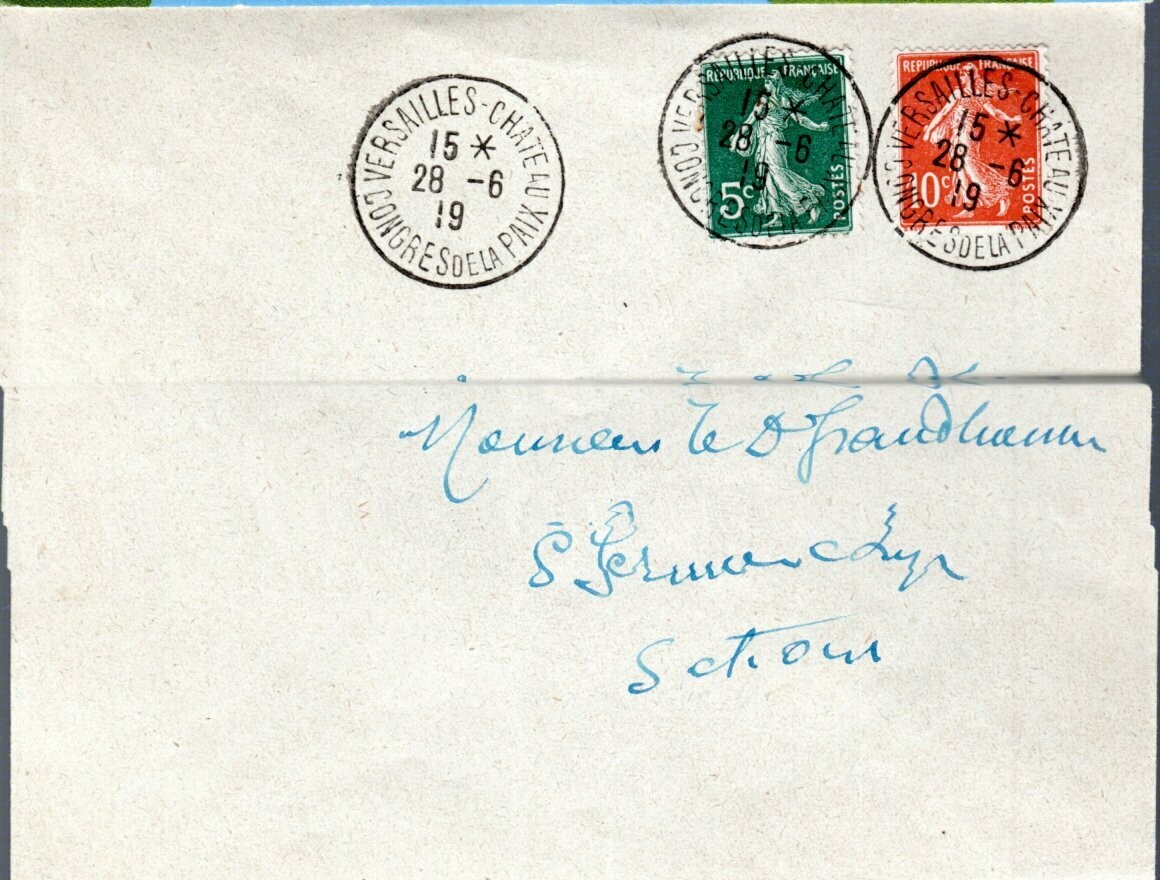 VERSAILLES-CHATEAU
15 *
28 -6
19
CONGRES DE LA PAIX
REPUBLIQUE FRANÇAISE
5c
POSTES
VERSAILLES-CHATEAU
15 *
28 -6
19
CONGRES DE LA
REPUBLIQUE FRANÇAISE
10c
POSTES
VERSAILLES-CHATEAU
15 *
28 -6
19
CONGRES DE LA PAIX
Monsieur le Dr
S